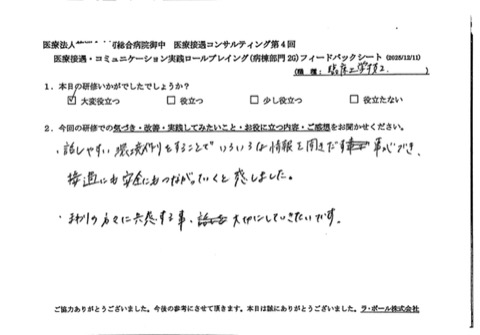 医療法人 総合病院御中 医療接遇コンサルティング第4回
医療接遇・コミュニケーション実践ロールプレイング(病棟部門26)フィードバックシート (2025/12/11)
(職種: 臨床工学技士 )
1. 本日の研修いかがでしたでしょうか?
☑ 大変役立つ □ 役立つ □ 少し役立つ □ 役立たない
2. 今回の研修での気づき・改善・実践してみたいこと・お役に立つ内容・ご感想をお聞かせください。
・話しやすい環境作りをすることでいろいろな情報を聞きだす事ができ、
接遇にも安全にもつながっていくと感じました。
・まわりの方々に共感する事、大切にしていきたいです。
ご協力ありがとうございました。今後の参考にさせて頂きます。本日は誠にありがとうございました。ラ・ポール株式会社